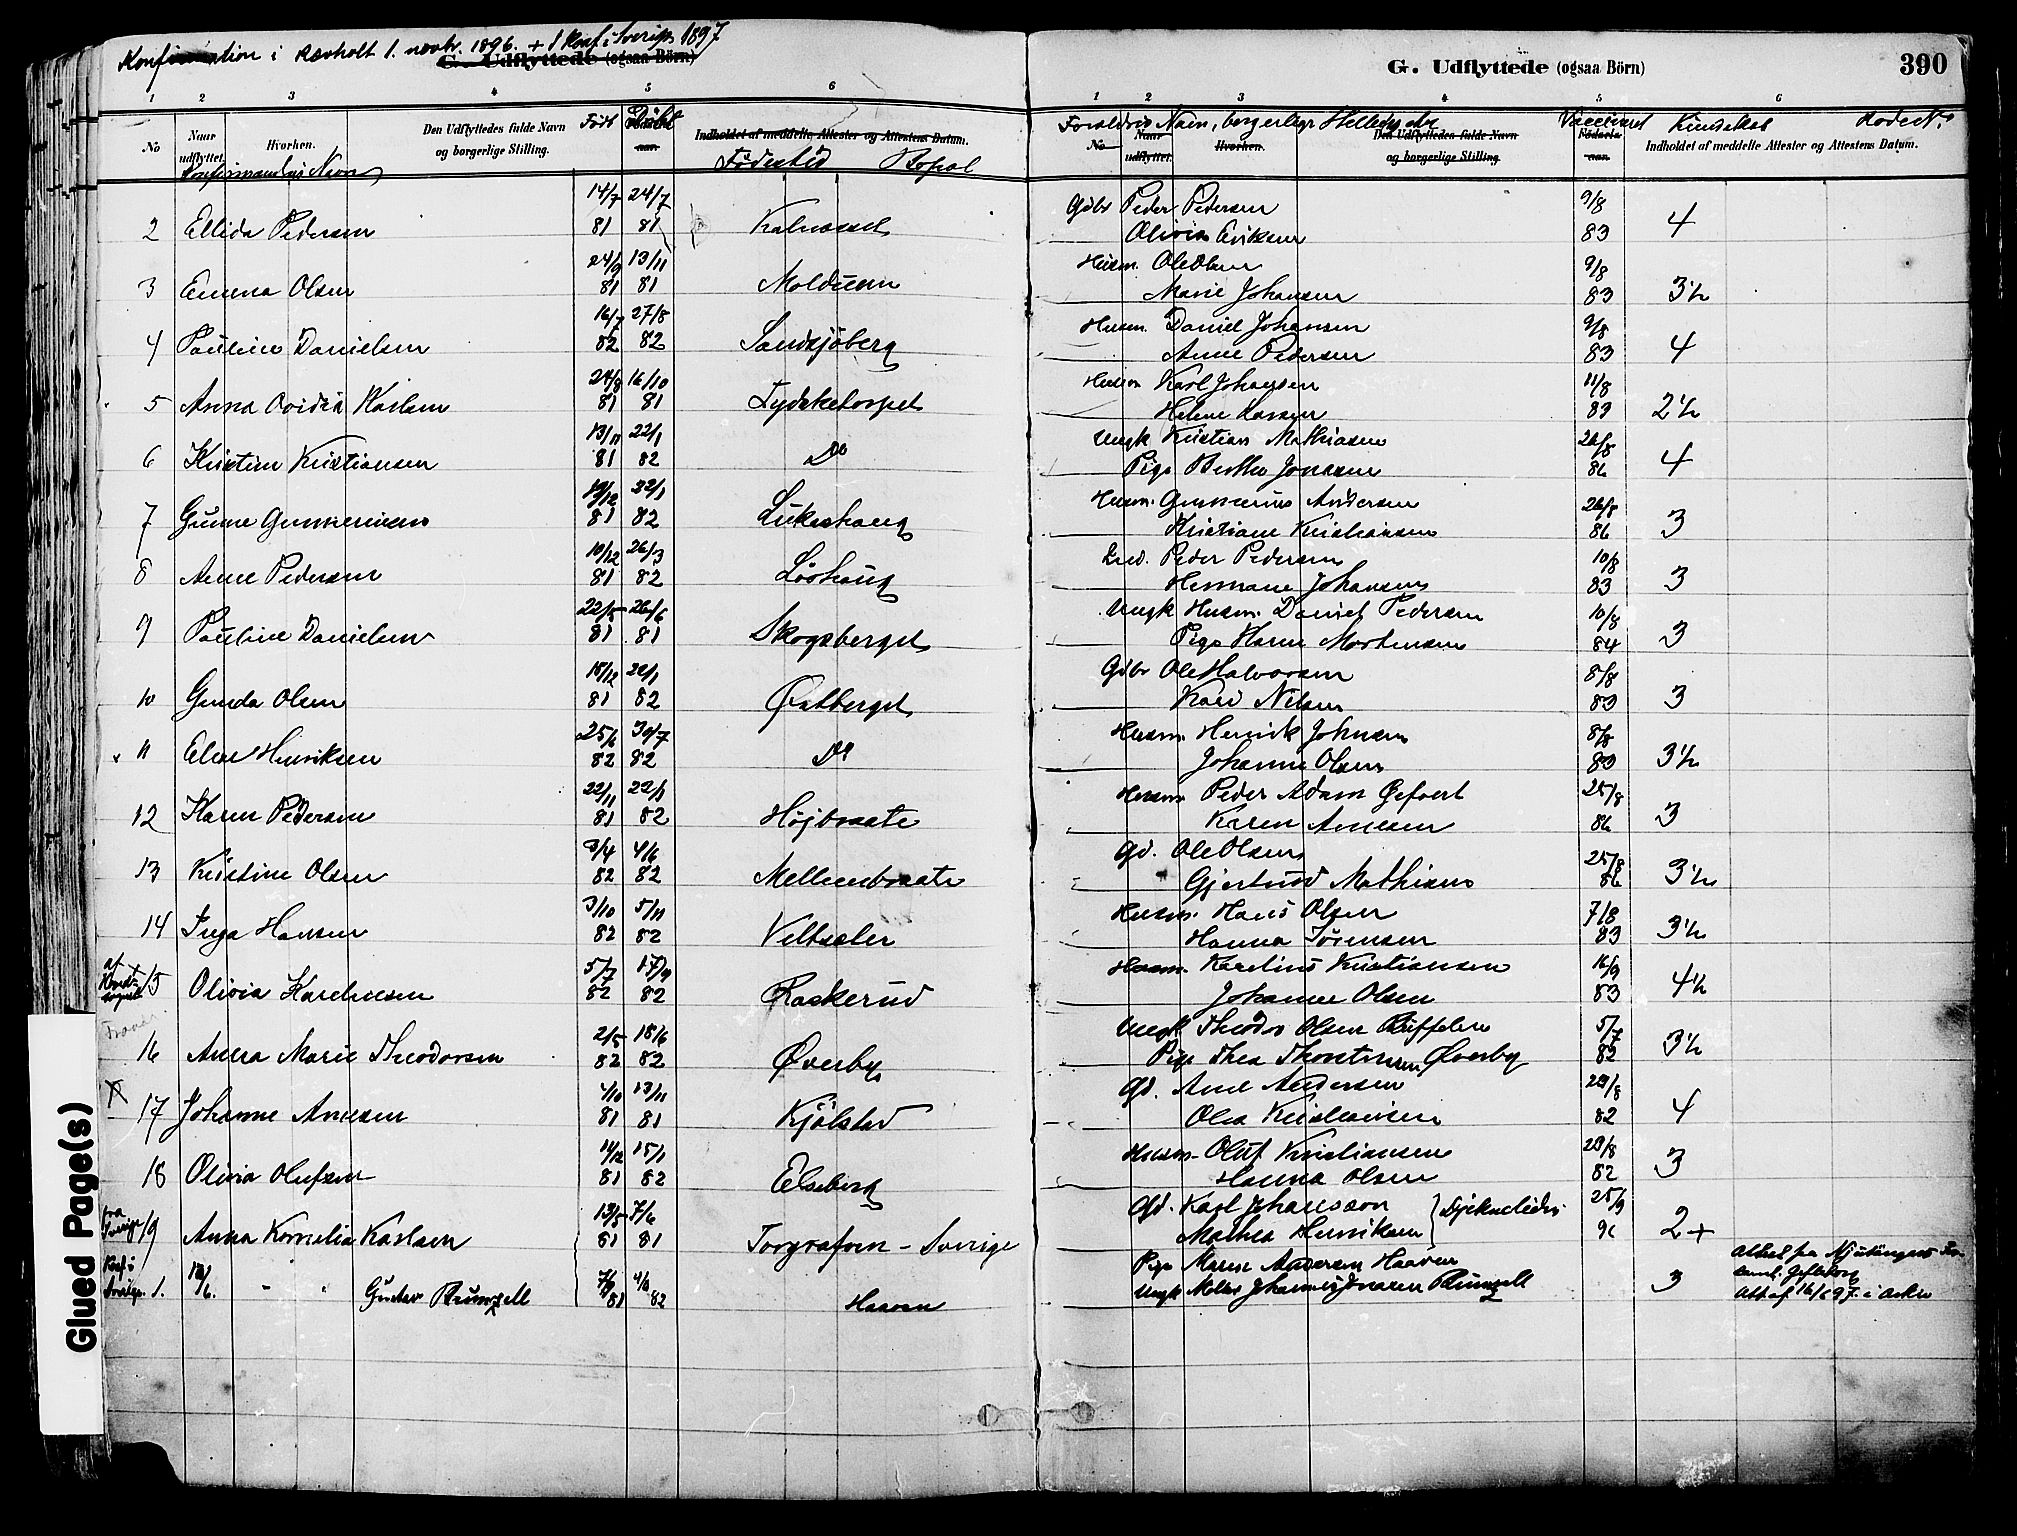 Konfirmation i Rævholt 1. novbr. 1896. + 1 Konf. i Sverige 1897
G. Udflyttede (ogsaa Börn)
1 2 3 4 5 6
No
Naar udflyttet.
Hvorhen.
Den Udflyttedes fulde Navn og borgerlige Stilling.
Født
Døbt
Indholdet af meddelte Attester og Attestens Datum.
Konfirmandens Navn
Fødested
Bopæl
2 Ellida Pedersen 14/7 81 24/7 81 Kalnæsset
3 Emma Olsen 24/9 81 13/11 81 Moldusen
4 Pauline Danielsen 16/7 82 27/8 82 Sandsjöberg
5 Anna Ovidia Karlsen 24/8 81 16/10 81 Tydsketorpet
6 Kristine Kristiansen 13/11 81 22/1 82 Do
7 Gunne Gunneriusen 19/12 81 22/1 82 Lukashaug
8 Anne Pedersen 10/12 81 26/3 82 Löshaug
9 Pauline Danielsen 22/5 81 26/6 81 Skogsberget
10 Gunda Olsen 18/12 81 22/1 82 Østberget
11 Eline Henriksen 25/6 82 30/7 82 Do
12 Karen Pedersen 22/11 81 22/1 82 Højbraate
13 Kristine Olsen 3/4 82 4/6 82 Mellembraate
14 Inga Hansen 3/10 82 5/11 82 Veltsæler
af Hovedsognet 15 Olivia Karelinsen 5/7 82 17/9 82 Raskerud
16 Anna Marie Theodorsen 2/5 82 18/6 82 Øverby
X 17 Johanne Arnesen 4/10 81 13/11 81 Kjölstad
18 Olivia Olufsen 11/12 81 15/1 82 Elseberg
fra Sverige 19 Anna Kornelia Karlsen 13/5 81 7/6 81 Torgrafven - Sverige
Konf. i Sverige. 1. 13/6. " " Gustav Brunzell 7/9 81 82 Haaven
G. Udflyttede (ogsaa Börn)
390
1 2 3 4 5 6
Forældres Navn, borgerlige Stilling etc
Vaccineret
Kundskab
Rode No
No
Naar udflyttet.
Hvorhen.
Den Udflyttedes fulde Navn og borgerlige Stilling.
Fødselsaar.
Indholdet af meddelte Attester og Attestens Datum.
Gdbr Peder Pedersen 9/8
Olivia Eriksen 83 4
Husm. Ole Olsen 9/8
Marie Johansen 83 3½
Husm. Daniel Johansen 9/8
Anne Pedersen 83 4
Husm Karl Johansen 11/8
Helene Larsen 83 2½
Ungk Kristian Mathiasen 26/8
Pige Berthe Jonasen 86 4
Husm. Gunnerius Andersen 26/8
Kristiane Kristiansen 86 3
Peder Pedersen 10/8
Hermane Johansen 83 3
Ungk Husm. Daniel Pedersen 10/8
Pige Karen Mortensen 84 3
Gdbr Ole Halvorsen 8/8
Kari Nilsen 83 3
Husm. Henrik Johnsen 8/8
Johanne Olsen 83 3½
Husm. Peder Adam Gefvert 25/8
Karen Arnesen 86 3
Gd. Ole Olsen 25/8
Gjertrud Mathisen 86 3½
Husm. Hans Olsen 7/8
Hanna Sørensen 83 3½
Husm. Karelius Kristiansen 16/9
Johanne Olsen 83 4½
Ungk Theodor Olsen Ruffelen 5/7
Pige Thea Thorstensen Øverby 82 3½
Gd. Arne Andersen 29/8
Olea Kristiansen 82 4
Husm. Oluf Kristiansen 29/8
Hanna Olsen 82 3
Gd. Karl Johansson 25/9
Mathea Henriksen 2+
Pige Maren Andersen Haaven
Ungk Johannes Brunzell 3
Attest fra Njutångers
Gefleborg
Att. af 16/6 97. i Arkiv
Glued Page(s)